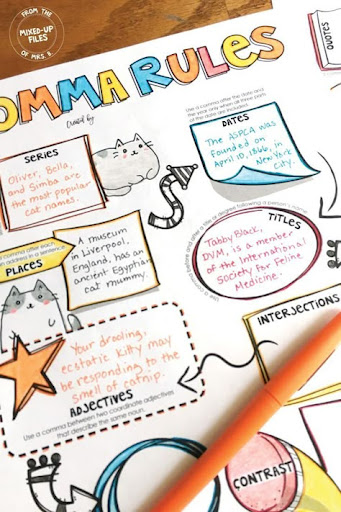 FROM THE
MIXED-UP
FILES
OF MRS. B.
OMMA RULES
Created by:
QUOTES
SERIES
Oliver, Bella,
and Simba are
the most popular
cat names.
Use a comma after the date and
the year only when all three parts
of the date are included.
DATES
The ASPCA was
founded on
April 10, 1866, in
New York
City.
comma after each
an address in a sentence
PLACES
A museum
in Liverpool,
England, has an
ancient Egyptian
cat mummy.
Use a comma before and after a title or degree following a person's name.
TITLES
Tabby Black,
DVM, is a member
of the International
Society for Feline
Medicine.
INTERJECTIONS
Your drooling,
ecstatic kitty may
be responding to the
smell of catnip.
ADJECTIVES
Use a comma between two coordinate adjectives
that describe the same noun.
CONTRAST